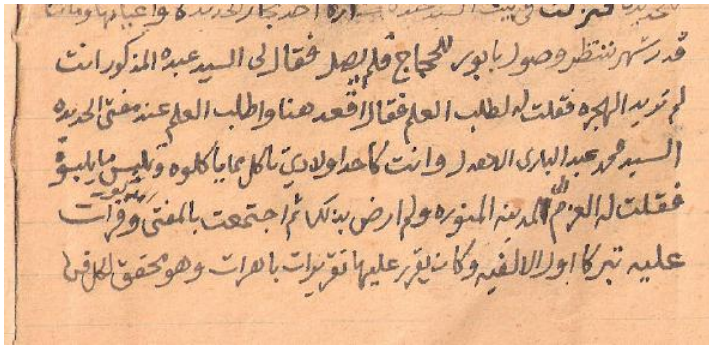 للحديدة فنزلت في بيت السيد عبده احد تجار الحديده واعيانها ومكثنا
قدر شهر ننتظر وصول بابور للحجاج فلم يصل فقال لى السيد عبده المذكور انت
لم تريد الهجره فقلت له لطلب العلم فقال اقعد هنا واطلب العلم عند مفتى الحديده
السيد محمد عبد البارى الاهدل وانت كاحد اولادي تاكل مما ياكلوه وتلبس ما يلبسوه
فقلت له العزم الى المدينه المنوره ولم ارض بذلك ثم اجتمعت بالمفتى وقرات
عليه تبركا اول الالفيه وكان يقرر عليها تقريرات باهرات وهو محقق لكل فن